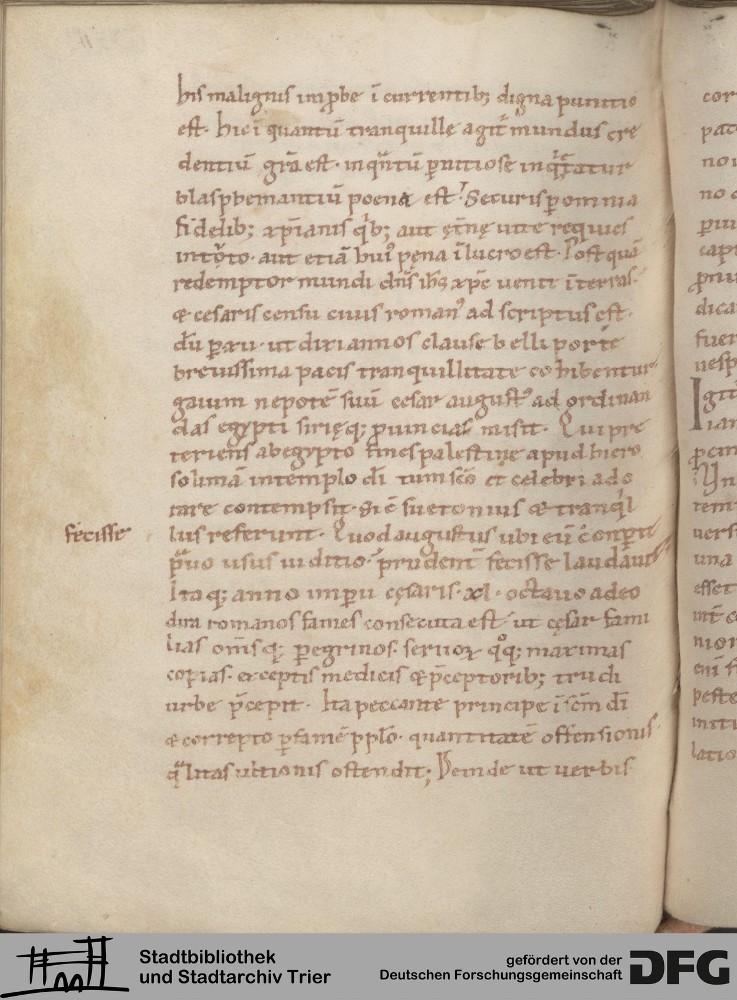 his malignis inp̱be ī currentib; digna punitio
est. hic ī quantū tranquille agit᷑ mundus cre
dentiū grā est. inqͣntū p̱nitiose inqͥetatur
blasphemantiū poena est. Securis p̱ omnia
fidelib; xp̄ianis qͥb; aut ęt̄nę uite requies
in tͦto. aut etiā huiꝰ pęna ī lucro est. Postquā
redemptor mundi dn̄s ih̄s xp̄c uenit ī terras.
& cesaris censu ciuis romanꝰ ad scriptus est.
dū p̱ xii. ut dixi annos clause belli porte
beatissima pacis tranquillitate cohibentur
gaium nepotē suū cesar augustꝰ ad ordinan
das egypti sirięq; ꝓuincias misit. Qui pre
teriens ab egypto fines palestine apud hiero
solimā in templo dī tum sc̄o et celebri ado
rare contempsit. sic̄ suetonius & tranqͥl
lus referunt. Quod augustus ubi eū c̄onp̱it
fecisse
pͣuo usus iuditio. prudent̄ fecisse laudauit
Itaq; anno imp̱ii cęsaris. xl. octauo adeo
dira romanos fames consecuta est. ut cęsar fami
lias om̄sq; p̱egrinos. seruoꝝ qͦq; maximas
copias. exceptis medicis & p̄ceptorib; trudi
urbe p̄cepit. Ita peccante principe ī sc̄m dī
& correpto p̱ famē pp̄lo. quantitatē offensionis
qͣlitas ultionis ostendit; Deinde ut uerbis
Stadtbibliothek
und Stadtarchiv Trier
gefördert von der
Deutschen Forschungsgemeinschaft
DFG